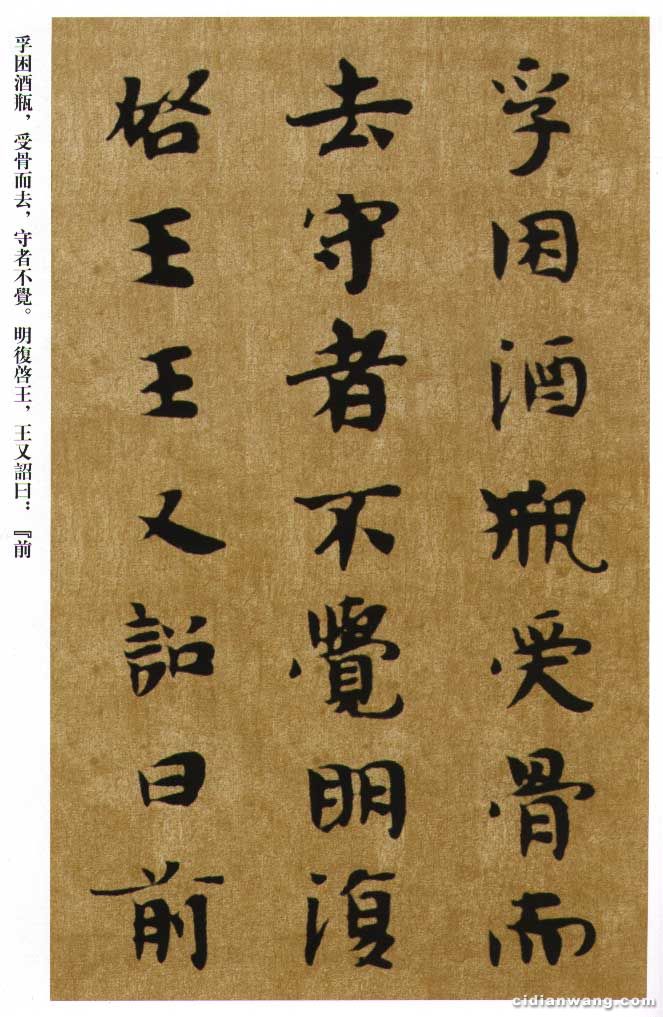 孚困酒瓶受骨而
去守者不覺明復
啓王王又詔曰前
孚困酒瓶，受骨而去，守者不覺。明復啓王，王又詔曰：『前
cidianwang.com